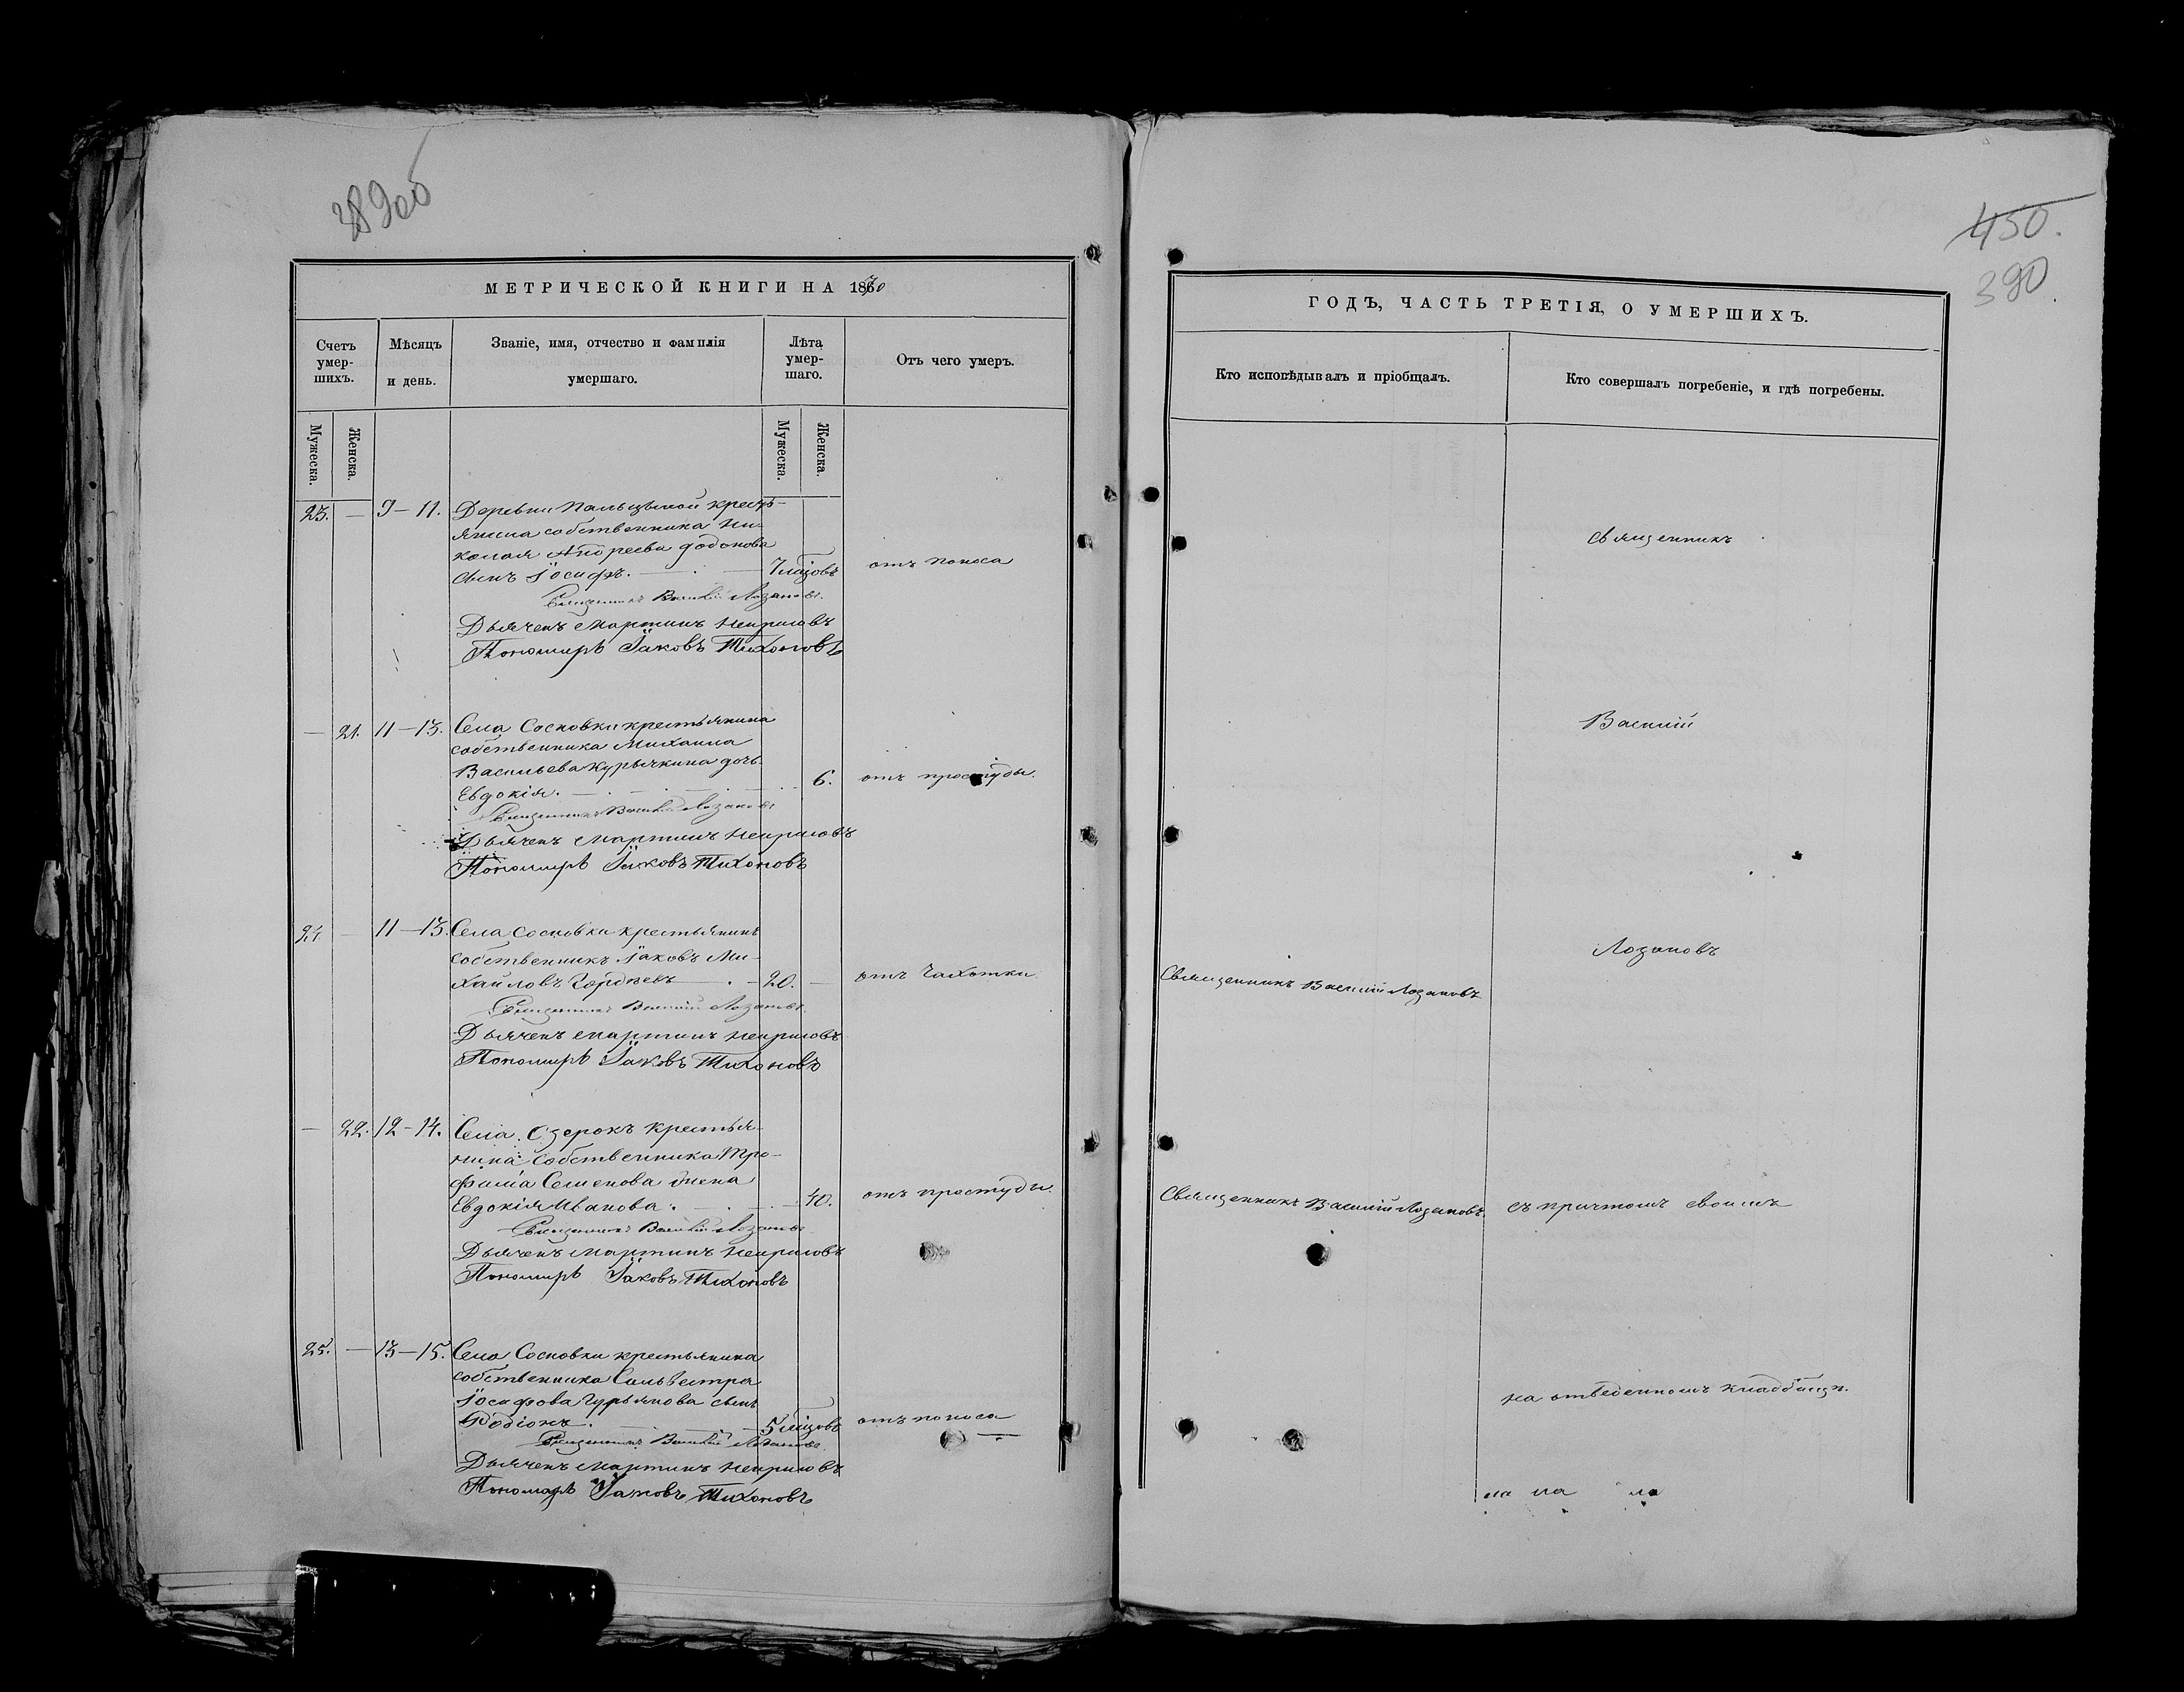 389об
МЕТРИЧЕСКОЙ КНИГИ НА 1870
Счетъ умер-шихъ.
Мѣсяцъ и день.
Званіе, имя, отчество и фамилія умершаго.
Лѣта умер-шаго.
Отъ чего умеръ.
Мужеска.
Женска.
Мужеска.
Женска.
23. — 9–11. Деревни Пальцыной кресть-
янина собственника Ни-
колая Андреева Додонова
сынъ Іосифъ. — 7 мѣцовъ отъ поноса
Священникъ Василій Лозановъ.
Дьячекъ Мартинъ
Пономарь Іаковъ Тихоновъ
— 21. 11–13. Села Сосновки крестьянина
собственника Михаила
Васильева Курычкина дочь
Евдокія. — 6. отъ простуды.
Священникъ Василій Лозановъ
Дьячекъ Мартинъ
Пономарь Іаковъ Тихоновъ
24. — 11–13. Села Сосновки крестьянинъ
собственникъ Іаковъ Ми-
хайловъ Гордѣевъ — 20. — отъ чахотки
Священникъ Василій Лозановъ.
Дьячекъ Мартинъ
Пономарь Іаковъ Тихоновъ
— 22. 12–14. Села Озерокъ крестья-
нина собственника Тро-
фима Семенова жена
Евдокія Иванова. — 40. отъ простуды.
Священникъ Василій Лозановъ
Дьячекъ Мартинъ
Пономарь Іаковъ Тихоновъ
25. — 13–15. Села Сосновки крестьянина
собственника Сильвестра
Іосифова Гурьянова сынъ
Родіонъ. — 5 мѣцовъ отъ поноса
Священникъ Василій Лозановъ
Дьячекъ Мартинъ
Пономарь Іаковъ Тихоновъ
450.
390
ГОДЪ, ЧАСТЬ ТРЕТІЯ, О УМЕРШИХЪ.
Кто исповѣдывалъ и пріобщалъ.
Кто совершалъ погребеніе, и гдѣ погребены.
Священникъ
Василій
Лозановъ
Священникъ Василій Лозановъ
Священникъ Василій Лозановъ. съ причтомъ своимъ
на отведенномъ кладбищѣ.